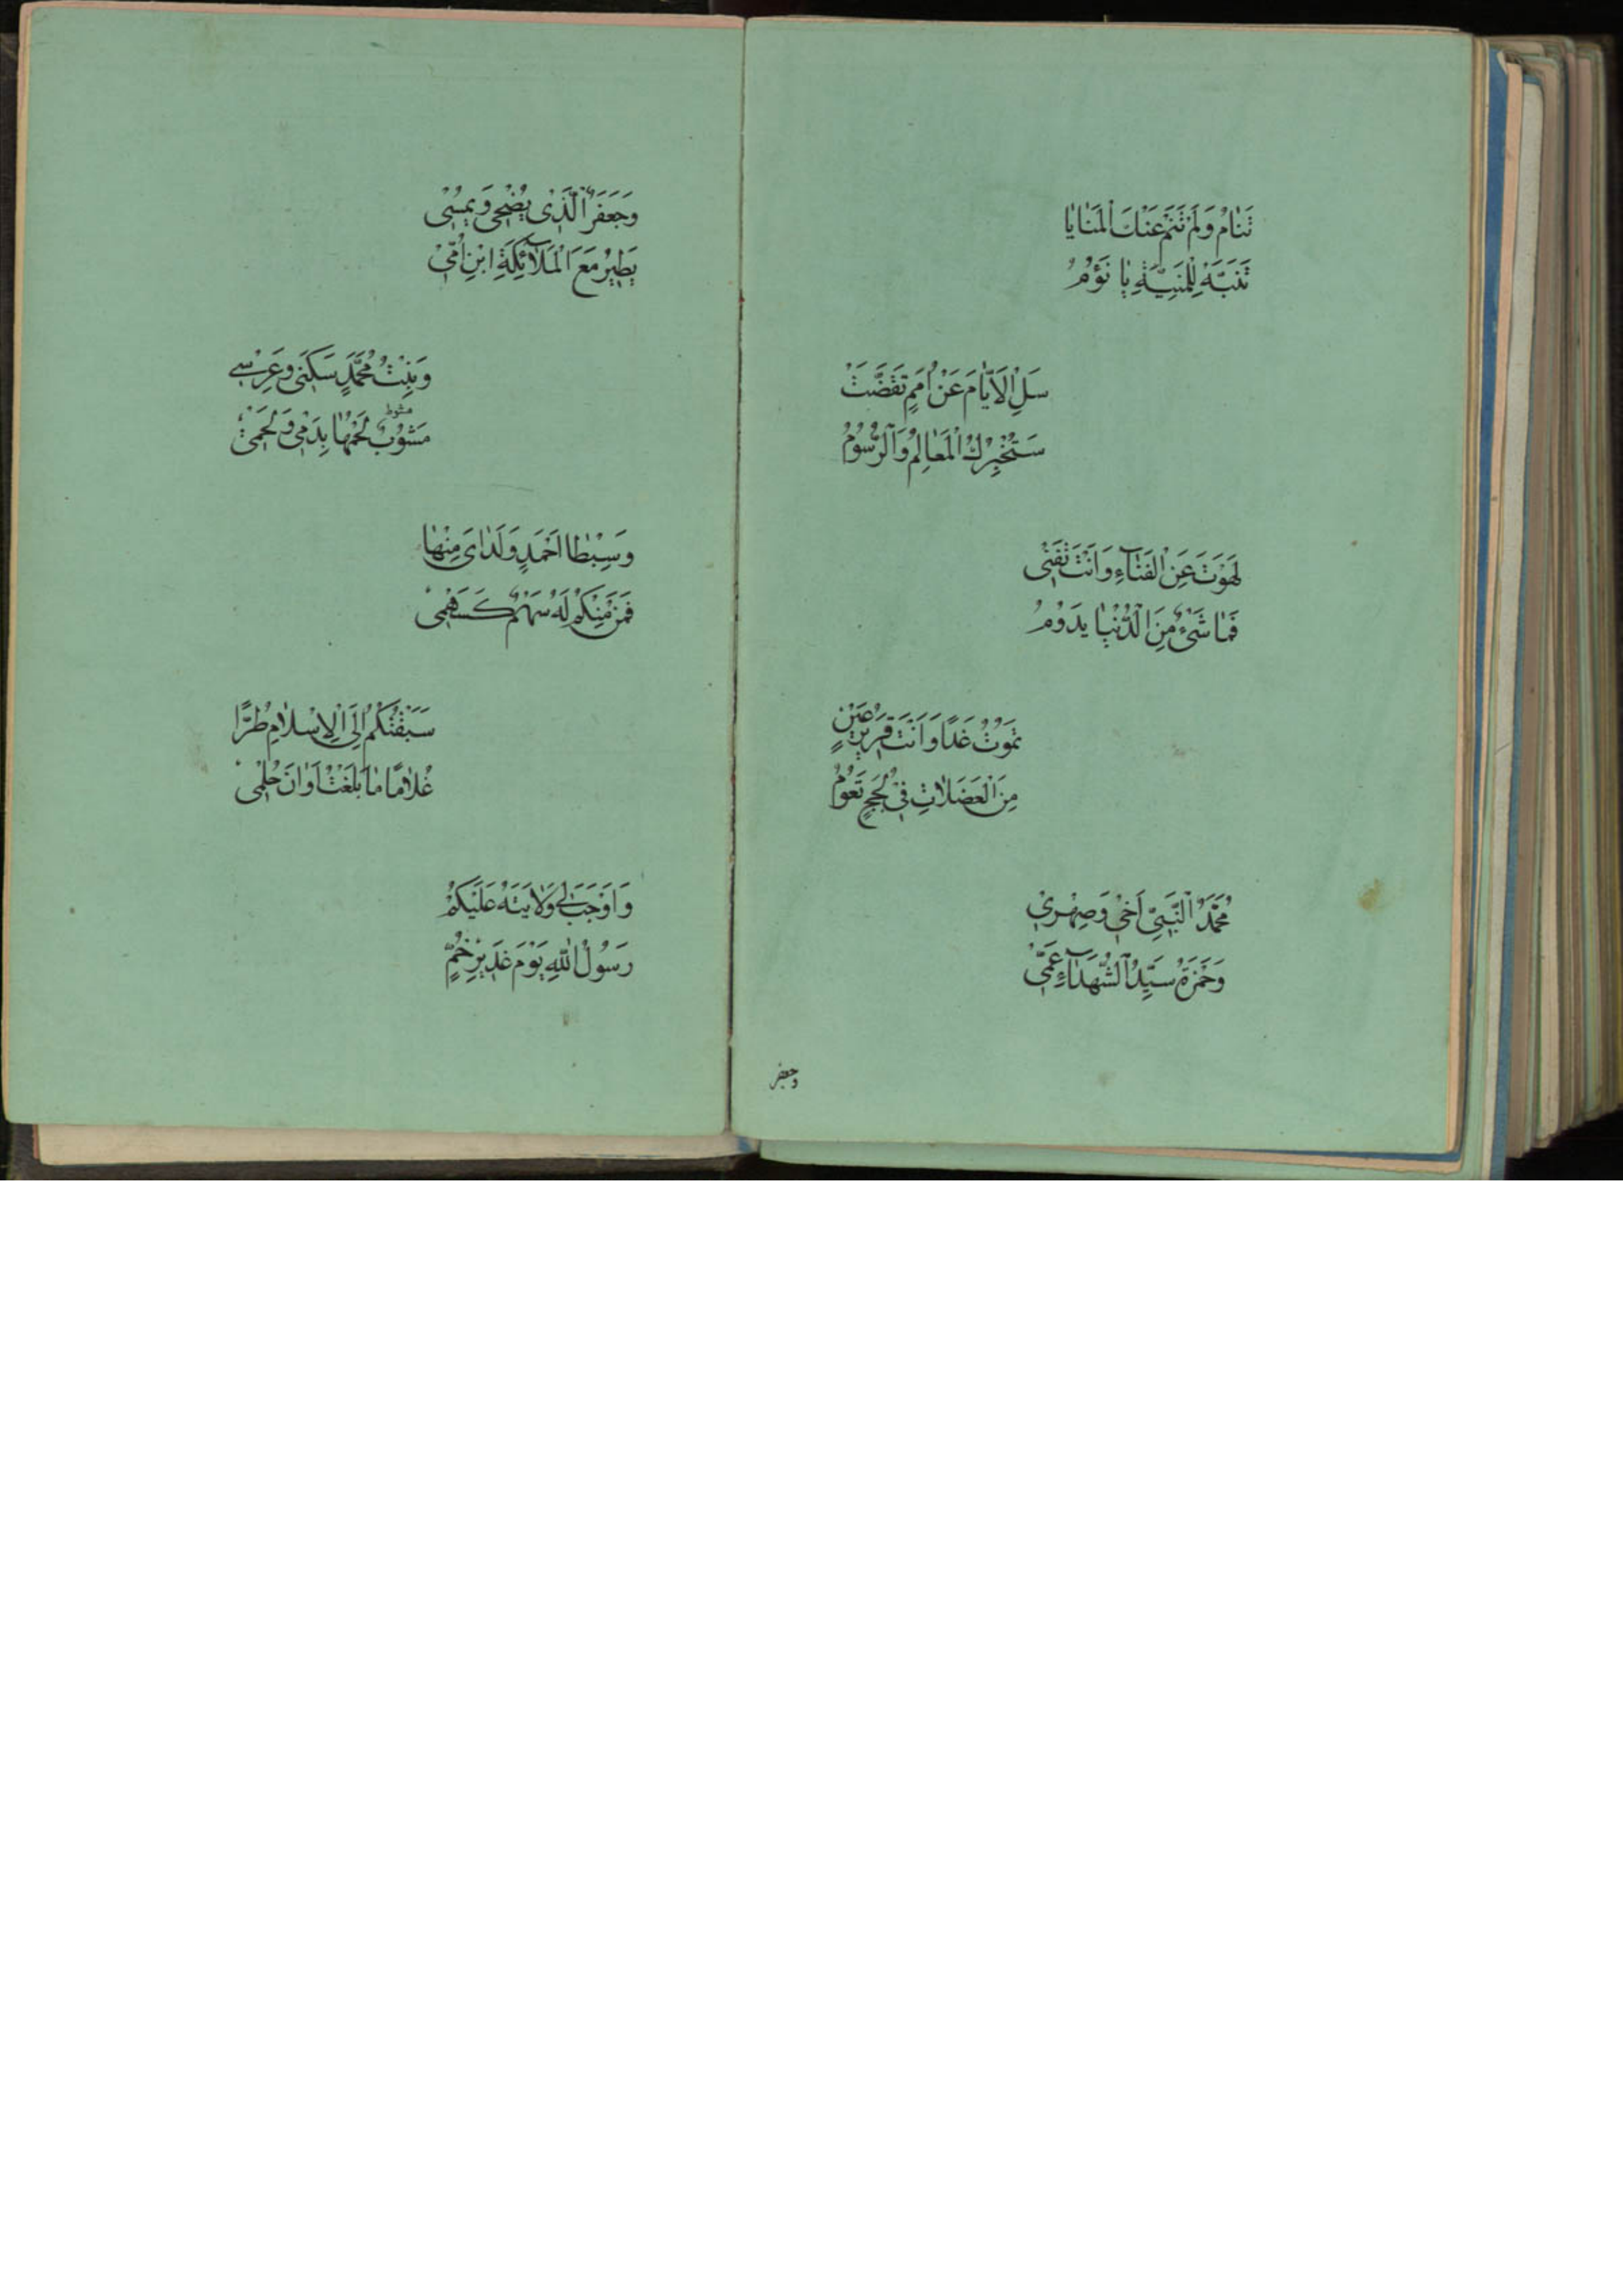 تَنٰامُ وَلَمْ تَنَمْ عَنْكَ الْمَنٰايٰا
تَنَبَّهْ لِلْمَنِيَّةِ يٰا نَؤُمُ
سَلِ الْاَيّٰامَ عَنْ اُمَمٍ تَقَضَّتْ
سَتُخْبِرُكَ الْمَعٰالِمُ وَالرُّسُومُ
لَهَوْتَ عَنِ الْفَنٰاءِ وَاَنْتَ تَفْنٰى
فَمٰا شَىْءٌ مِنَ الدُّنْيٰا يَدُوْمُ
تَمُوْتُ غَدًا وَاَنْتَ قَرِيْرُ عَيْنٍ
مِنَ الْعَضَلٰاتِ فِيْ لُجَجٍ تَعُوْمُ
مُحَمَّدٌ النَّبِىُّ اَخِيْ وَصِهْرِيْ
وَحَمْزَةُ سَيِّدُ الشُّهَدٰاءِ عَمِّيْ
وجعفر
وَجَعْفَرٌ الَّذِىْ يُضْحِىْ وَيُمْسِىْ
يَطِيْرُ مَعَ الْمَلٰٓائِكَةِ ابْنُ اُمِّيْ
وَبِنْتُ مُحَمَّدٍ سَكَنِىْ وَعِرْسِىْ
منوط
مَشُوْبٌ لَحْمُهٰا بِدَمِىْ وَلَحْمِىْ
وَسِبْطٰا اَحْمَدٍ وَلَدٰاىَ مِنْهٰا
فَمَنْ مِنْكُمْ لَهُ سَهْمٌ كَسَهْمِىْ
سَبَقْتُكُمْ اِلَى الْاِسْلٰامِ طُرًّا
غُلٰامًا مٰا بَلَغْتُ اَوٰانَ حُلْمِىْ
وَاَوْجَبَ لِىْ وَلٰايَتَهُ عَلَيْكُمْ
رَسُوْلُ اللّٰهِ يَوْمَ غَدِيْرِ خُمٍّ